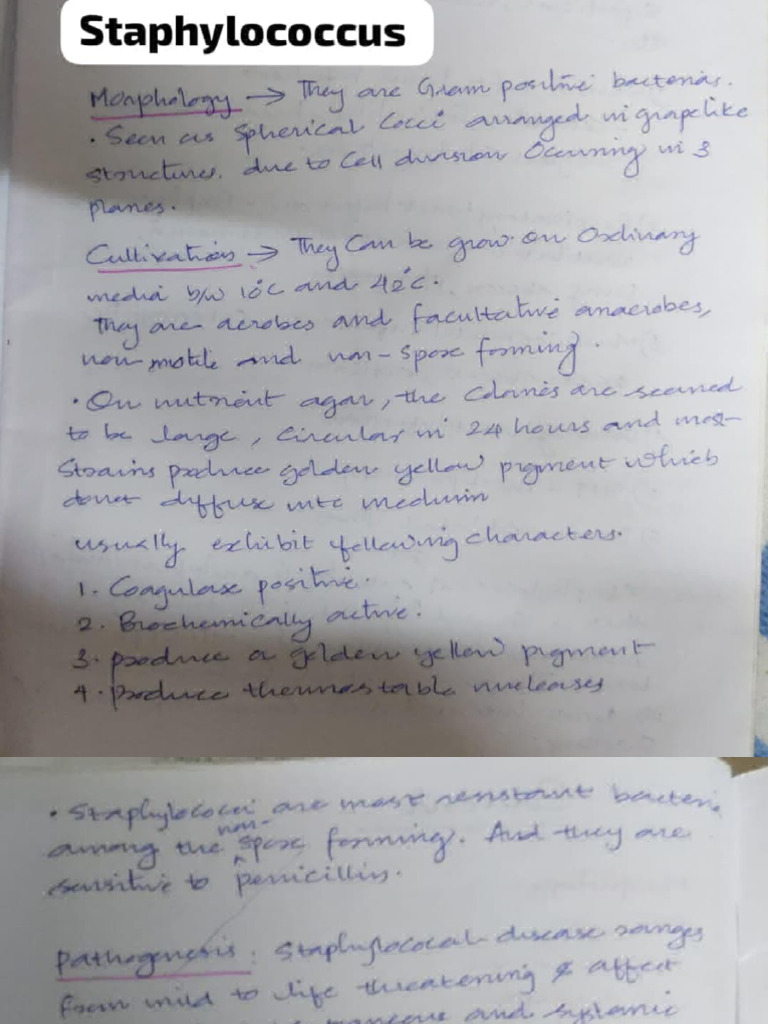 Staphylococcus
Morphology → They are Gram positive bacterias.
• Seen as Spherical Cocci arranged in grapelike
structures. due to Cell division Occurring in 3
planes.
Cultivation → They Can be grow on Ordinary
media b/w 10°C and 42°C.
They are aerobes and facultative anaerobes,
non-motile and non-spore forming.
• On nutrient agar, the Colonies are seemed
to be large, Circular in 24 hours and most
Strains produce golden yellow pigment which
donot diffuse into medium
usually exhibit following characters.
1. Coagulase positive.
2. Biochemically active.
3. produce a golden yellow pigment
4. produce thermostable nucleases
• Staphylococci are most resistant bacteria
among the non-spore forming. And they are
sensitive to penicillin.
Pathogenesis: Staphylococal disease ranges
from mild to life threatening & affect
and systemic